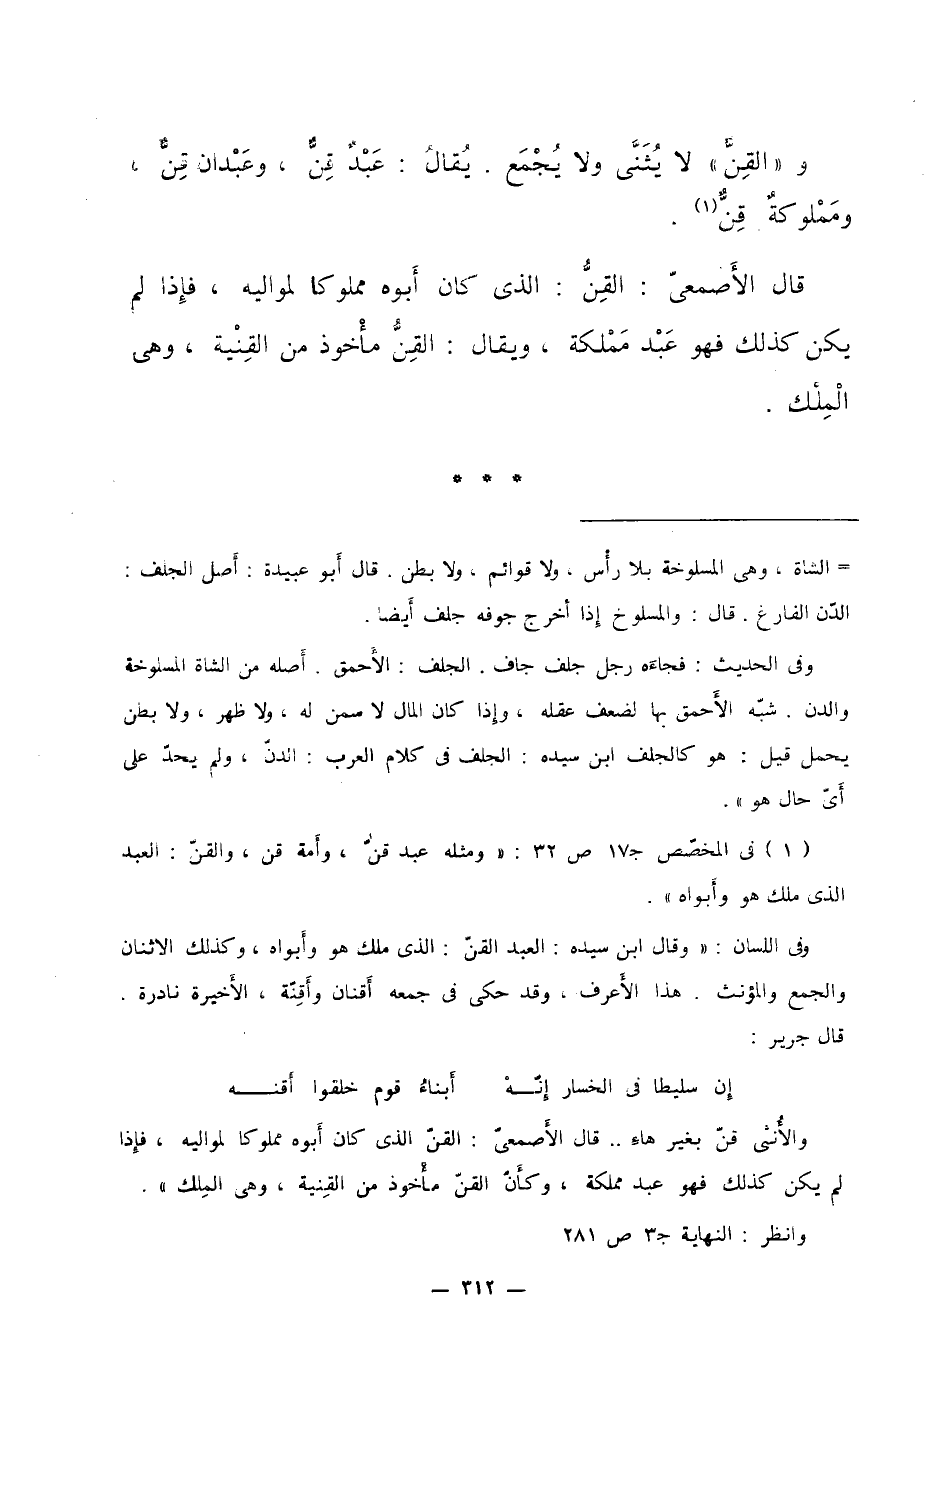 و « القِنُّ » لا يُثَنَّى ولا يُجْمَع . يُقالُ : عَبْدٌ قِنٌّ ، وعَبْدان قِنٌّ ،
ومَمْلوكةٌ قِنٌّ(١) .
قال الأَصْمعىّ : القِنُّ : الذى كان أَبوه مملوكا لمواليه ، فإِذا لم
يكن كذلك فهو عَبْد مَمْلكة ، ويقال : القِنُّ مأْخوذ من القِنْية ، وهى
الْمِلْك .
* * *
= الشاة ، وهى المسلوخة بلا رأْس ، ولا قوائم ، ولا بطن . قال أَبو عبيدة : أَصل الجلف :
الدّن الفارغ . قال : والمسلوخ إِذا أخرج جوفه جلف أَيضا .
وفى الحديث : فجاءه رجل جلف جاف . الجلف : الأَحمق . أَصله من الشاة المسلوخة
والدن . شبّه الأَحمق بها لضعف عقله ، وإِذا كان المال لا سمن له ، ولا ظهر ، ولا بطن
يحمل قيل : هو كالجلف ابن سيده : الجلف فى كلام العرب : الدنّ ، ولم يحدّ على
أَىّ حال هو » .
( ١ ) فى المخصّص ج١٧ ص ٣٢ : « ومثله عبد قنٌّ ، وأَمة قن ، والقنّ : العبد
الذى ملك هو وأَبواه » .
وفى اللسان : « وقال ابن سيده : العبد القنّ : الذى ملك هو وأَبواه ، وكذلك الاثنان
والجمع والمؤنث . هذا الأَعرف ، وقد حكى فى جمعه أَقنان وأَقِنّة ، الأَخيرة نادرة .
قال جرير :
إِن سليطا فى الخسار إِنّهْ أَبناءُ قوم خلقوا أَقنه
والأُنثى قنّ بغير هاء .. قال الأَصمعىّ : القنّ الذى كان أَبوه مملوكا لمواليه ، فإِذا
لم يكن كذلك فهو عبد مملكة ، وكأَنّ القنّ مأْخوذ من القِنية ، وهى المِلك » .
وانظر : النهاية ج٣ ص ٢٨١
— ٣١٢ —